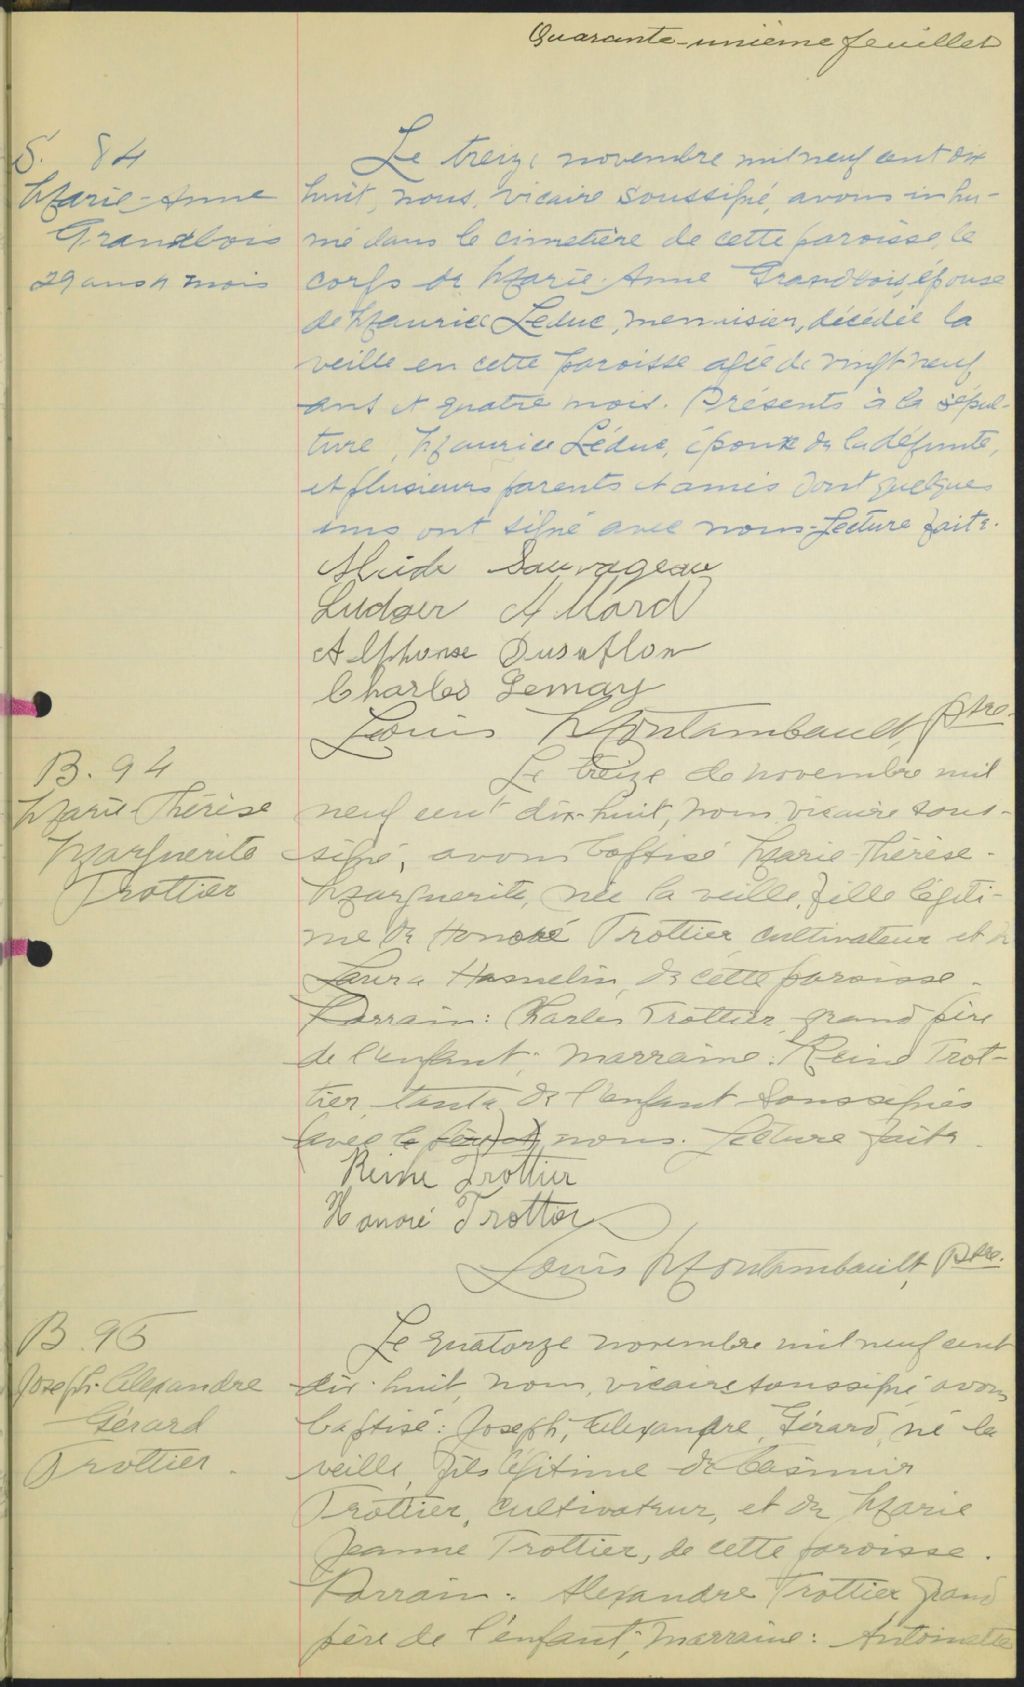 Quarante-unième feuillet
S. 84
Marie-Anne
Grandbois
29 ans 4 mois
Le treize novembre mil neuf cent dix
huit, nous, vicaire soussigné, avons inhu-
mé dans le cimetière de cette paroisse, le
corps de Marie-Anne Grandbois, épouse
de Maurice Leduc, menuisier, décédée la
veille en cette paroisse agée de vingt neuf
ans et quatre mois. Présents à la sépul-
ture, Maurice Léduc, époux de la défunte,
et plusieurs parents et amis dont quelques
uns ont signé avec nous. Lecture faite.
Alcide Sauvageau
Ludger Allard
Alphonse Dusablon
Charles Lemay
Louis Montambault, ptre.
B. 94
Marie-Thérèse
Marguerite
Trottier
Le treize de novembre mil
neuf cent dix-huit, nous vicaire sous-
signé, avons baptisé Marie-Thérèse-
Marguerite, née la veille, fille légiti-
me de Honoré Trottier cultivateur et de
Laura Hamelin, de cette paroisse.
Parrain: Charles Trottier grand père
de l'enfant; marraine: Reine Trot-
tier, tante de l'enfant soussignés
avec le père) et) nous. Lecture faite.
Reine Trottier
Honoré Trottier
Louis Montambault, Ptre.
B. 95
Joseph-Alexandre
Gérard
Trottier.
Le quatorze novembre mil neuf cent
dix-huit, nous, vicaire soussigné, avons
baptisé: Joseph, Alexandre, Gérard, né la
veille, fils légitime de Casimir
Trottier, cultivateur, et de Marie
Jeanne Trottier, de cette paroisse.
Parrain: Alexandre Trottier grand
père de l'enfant; marraine: Antoinette